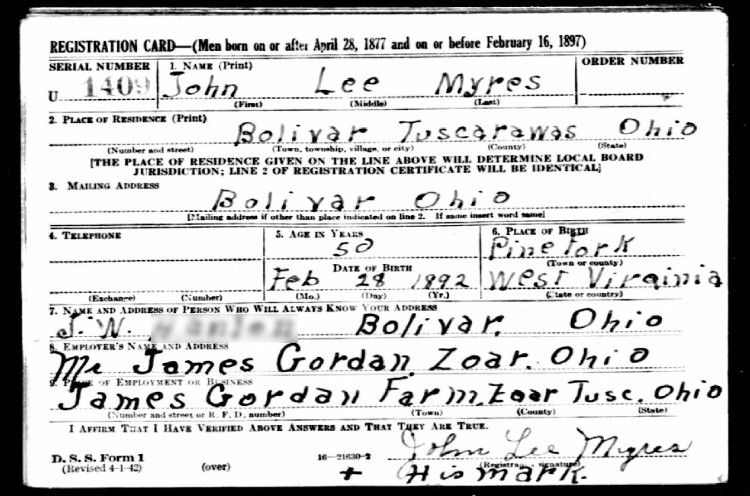 REGISTRATION CARD—(Men born on or after April 28, 1877 and on or before February 16, 1897)
SERIAL NUMBER 1. NAME (Print) ORDER NUMBER
U 1409 John Lee Myres
(First) (Middle) (Last)
2. PLACE OF RESIDENCE (Print)
Bolivar Tuscarawas Ohio
(Number and street) (Town, township, village, or city) (County) (State)
[THE PLACE OF RESIDENCE GIVEN ON THE LINE ABOVE WILL DETERMINE LOCAL BOARD
JURISDICTION; LINE 2 OF REGISTRATION CERTIFICATE WILL BE IDENTICAL]
3. MAILING ADDRESS
Bolivar Ohio
[Mailing address if other than place indicated on line 2. If same insert word same]
4. TELEPHONE 5. AGE IN YEARS 6. PLACE OF BIRTH
50 Pine fork
DATE OF BIRTH (Town or county)
Feb 28 1892 West Virginia
(Exchange) (Number) (Mo.) (Day) (Yr.) (State or country)
7. NAME AND ADDRESS OF PERSON WHO WILL ALWAYS KNOW YOUR ADDRESS
J. W. Bolivar, Ohio
8. EMPLOYER'S NAME AND ADDRESS
Mr James Gordan, Zoar. Ohio
9. PLACE OF EMPLOYMENT OR BUSINESS
James Gordan Farm, Zoar Tusc. Ohio
(Number and street or R. F. D. number) (Town) (County) (State)
I AFFIRM THAT I HAVE VERIFIED ABOVE ANSWERS AND THAT THEY ARE TRUE.
D. S. S. Form 1 16—21630-2 John Lee Myres
(Revised 4-1-42) (over) + (Registrant's signature)
His mark.